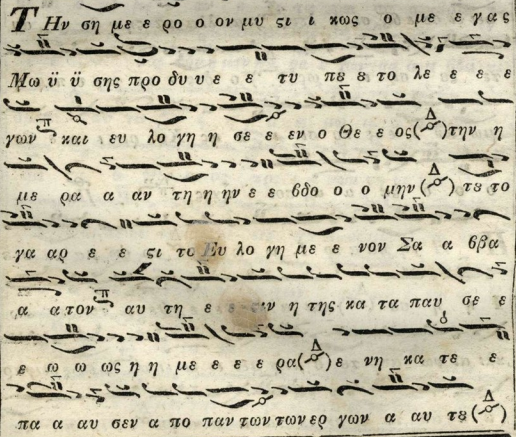 Την ση με ε ρο ο ον μυ ςι ι κως ο με ε γας
Μω ϋ ϋ σης προ δυ υ ε ε τυ πȣ ȣ το λε ε ε ε
γων και ευ λο γη η σε ε εν ο Θε ε ος (Δ) την η
με ρα α αν τη η ην ε ε βδο ο ο μην (Δ) τȣ το
γα αρ ε ε ςι το Ευ λο γη με ε νον Σα α ββα
α α τον αυ τη ε ε ςιν η της κα τα παυ σε ε
ε ω ω ως η η με ε ε ε ρα (Δ) ε νη κα τε ε
πα α αυ σεν α πο παν των των ερ γων α αυ τȣ (Δ)